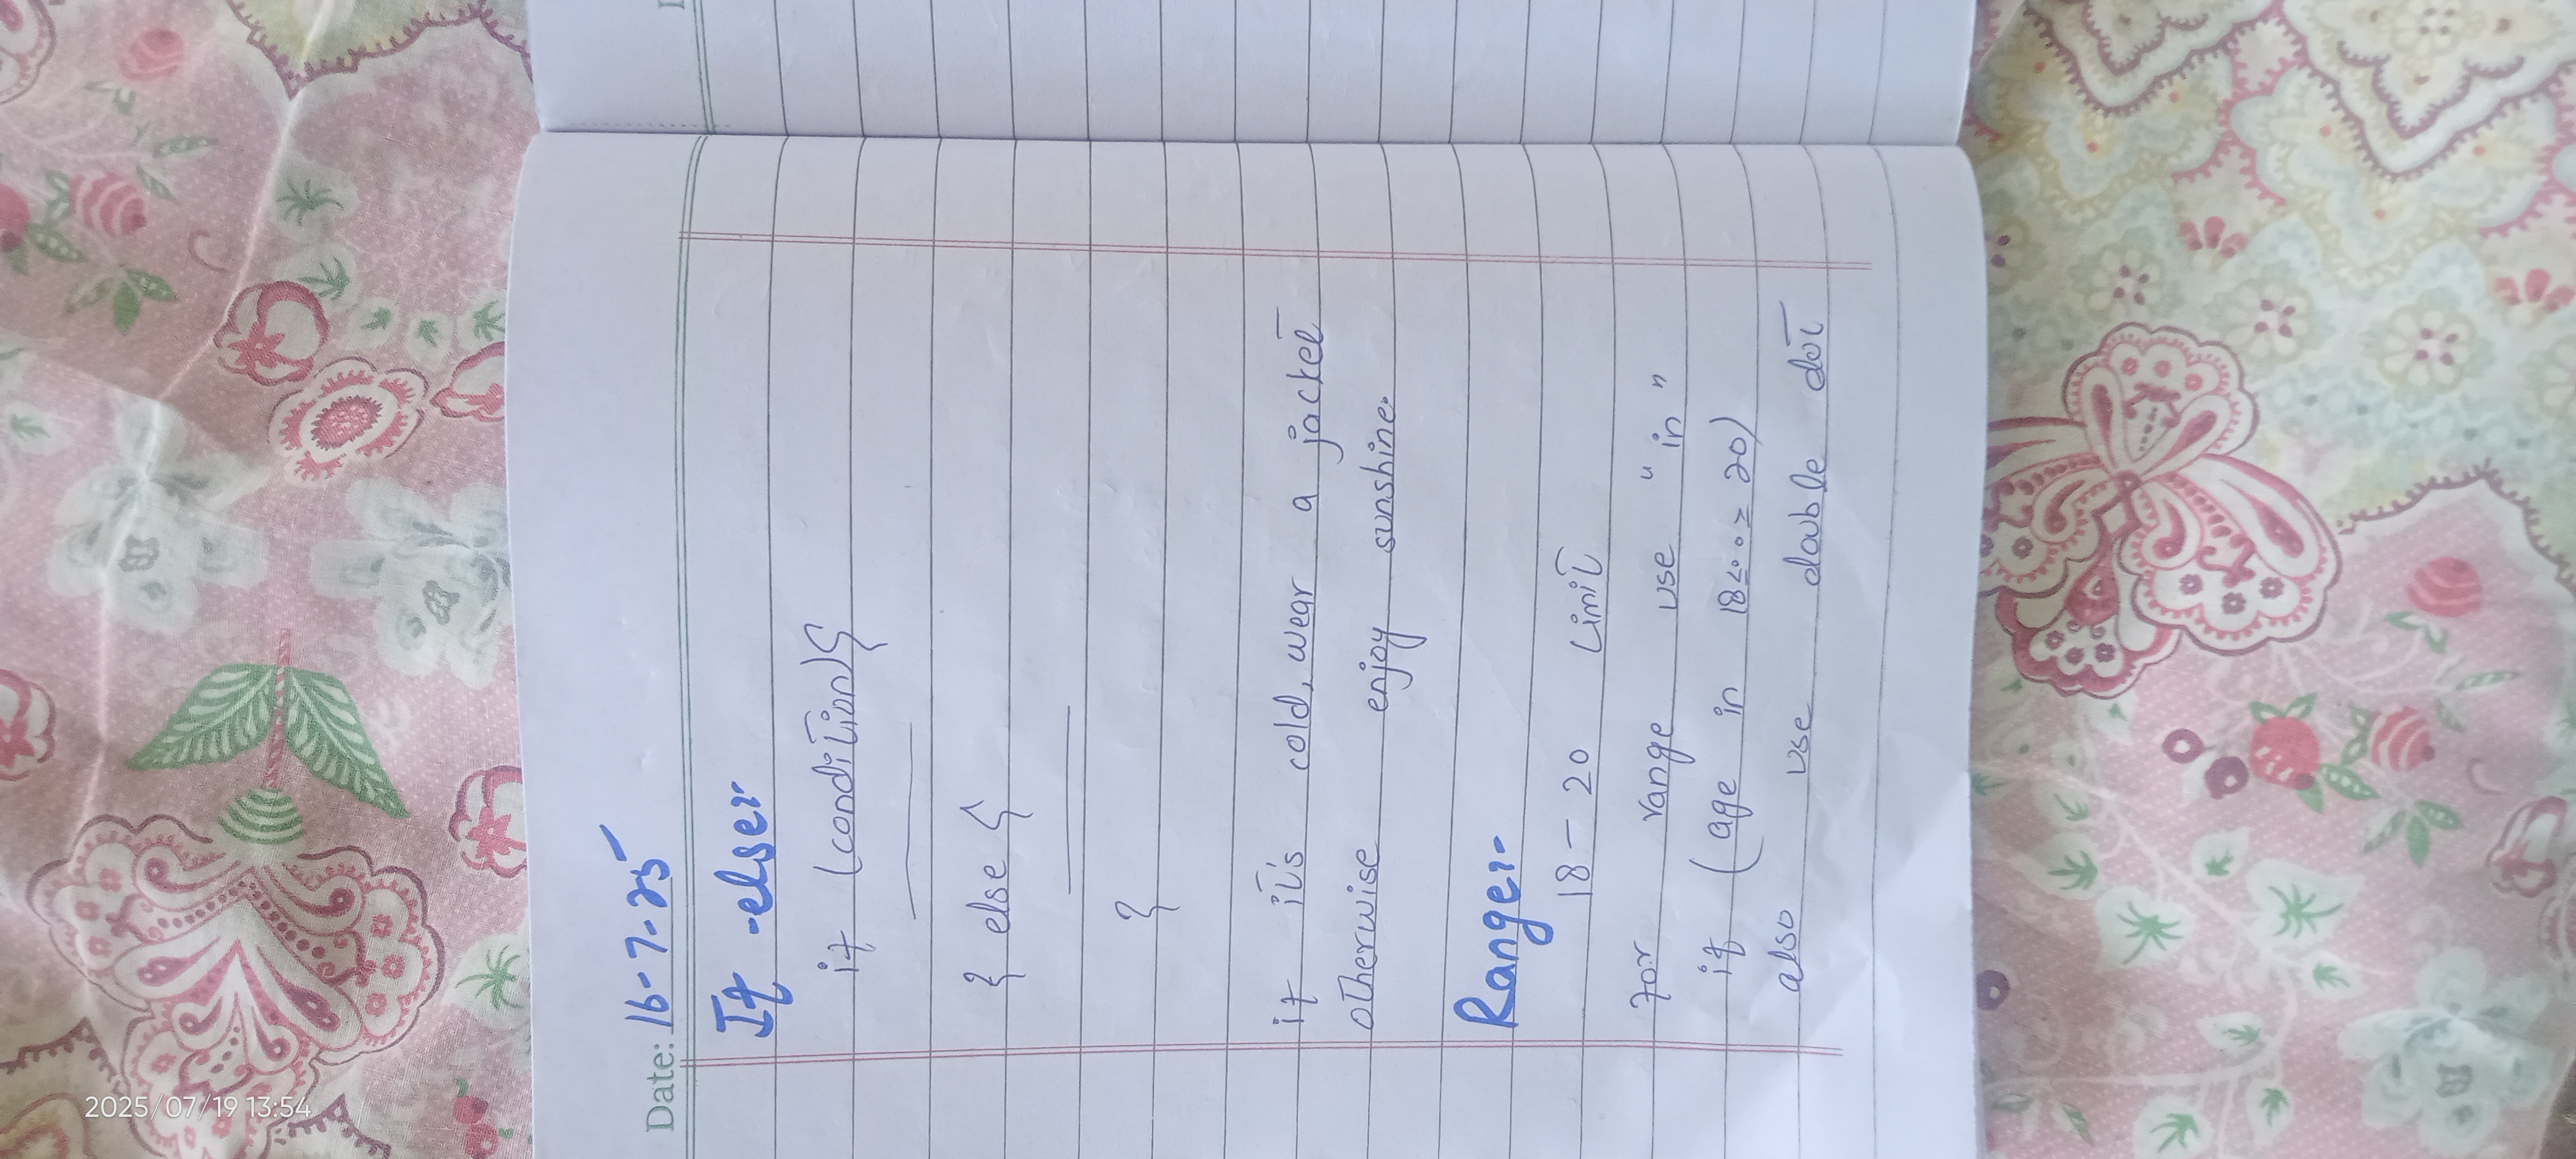 2025/07/19 13:54
Date: 16-7-25
If -else:-
if (condition){
} else {
}
if it's cold, wear a jacket
otherwise enjoy sunshine.
Range:-
18 - 20 Limit
for range use "in"
if (age in 18≤..≥ 20)
also use double dot